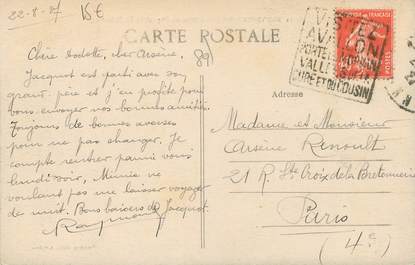 22-8-37
15€
CARTE POSTALE
(89)
Chère Odette, cher Arsène,
Jacquot est parti avec son
grand père et j'en profite pour
vous envoyer nos bonnes amitiés.
Toujours de bonnes averses
pour ne pas changer. Je
compte rentrer parmi vous
lundi soir, Mimie ne
voulant pas me laisser voyager
de nuit. Bons baisers de Jacquot.
Raymond
VISITEZ
AVALLON
PORTE DU MORVAN
VALLÉES DE LA
CURE ET DU COUSIN
FRANÇAISE
POSTES
Adresse
Madame et Monsieur
Arsène Renoult
21 R. Ste Croix de la Bretonnerie
Paris
(4e)